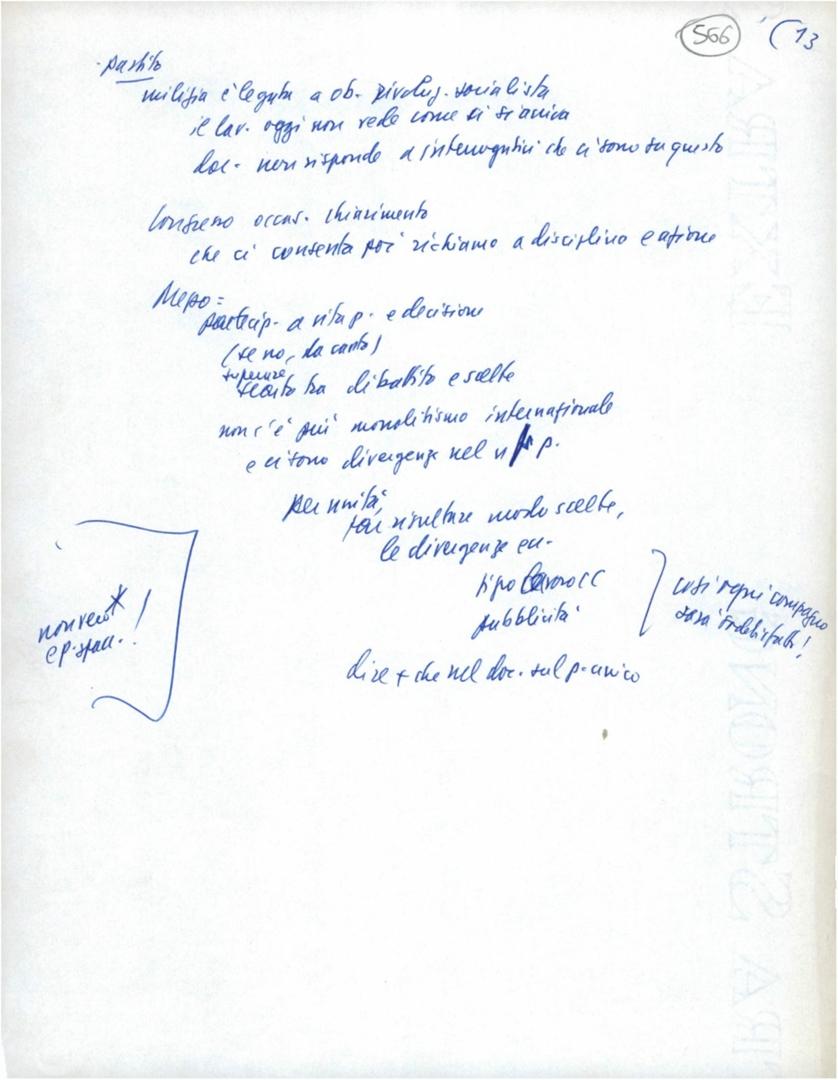 566 (13
- partito
milizia è legata a ob. rivoluz. socialista
il lav. oggi non vede come ci si avvia
doc. non risponde a interrogativi che ci sono su questo
Congresso occas. chiarimento
che ci consenta poi richiamo a disciplina e azione
Mezzo =
partecip. a vita p. e decisione
(se no, da canto)
superare
scarto tra dibattito e scelte
non c'è più monolitismo internazionale
e ci sono divergenze nel n/ p.
per unità,
far risultare modo scelte,
le divergenze ecc.
tipo lavoro CC
pubblicità
così ogni compagno
sarà
non vero
e p.
dire + che nel doc. sul p. unico